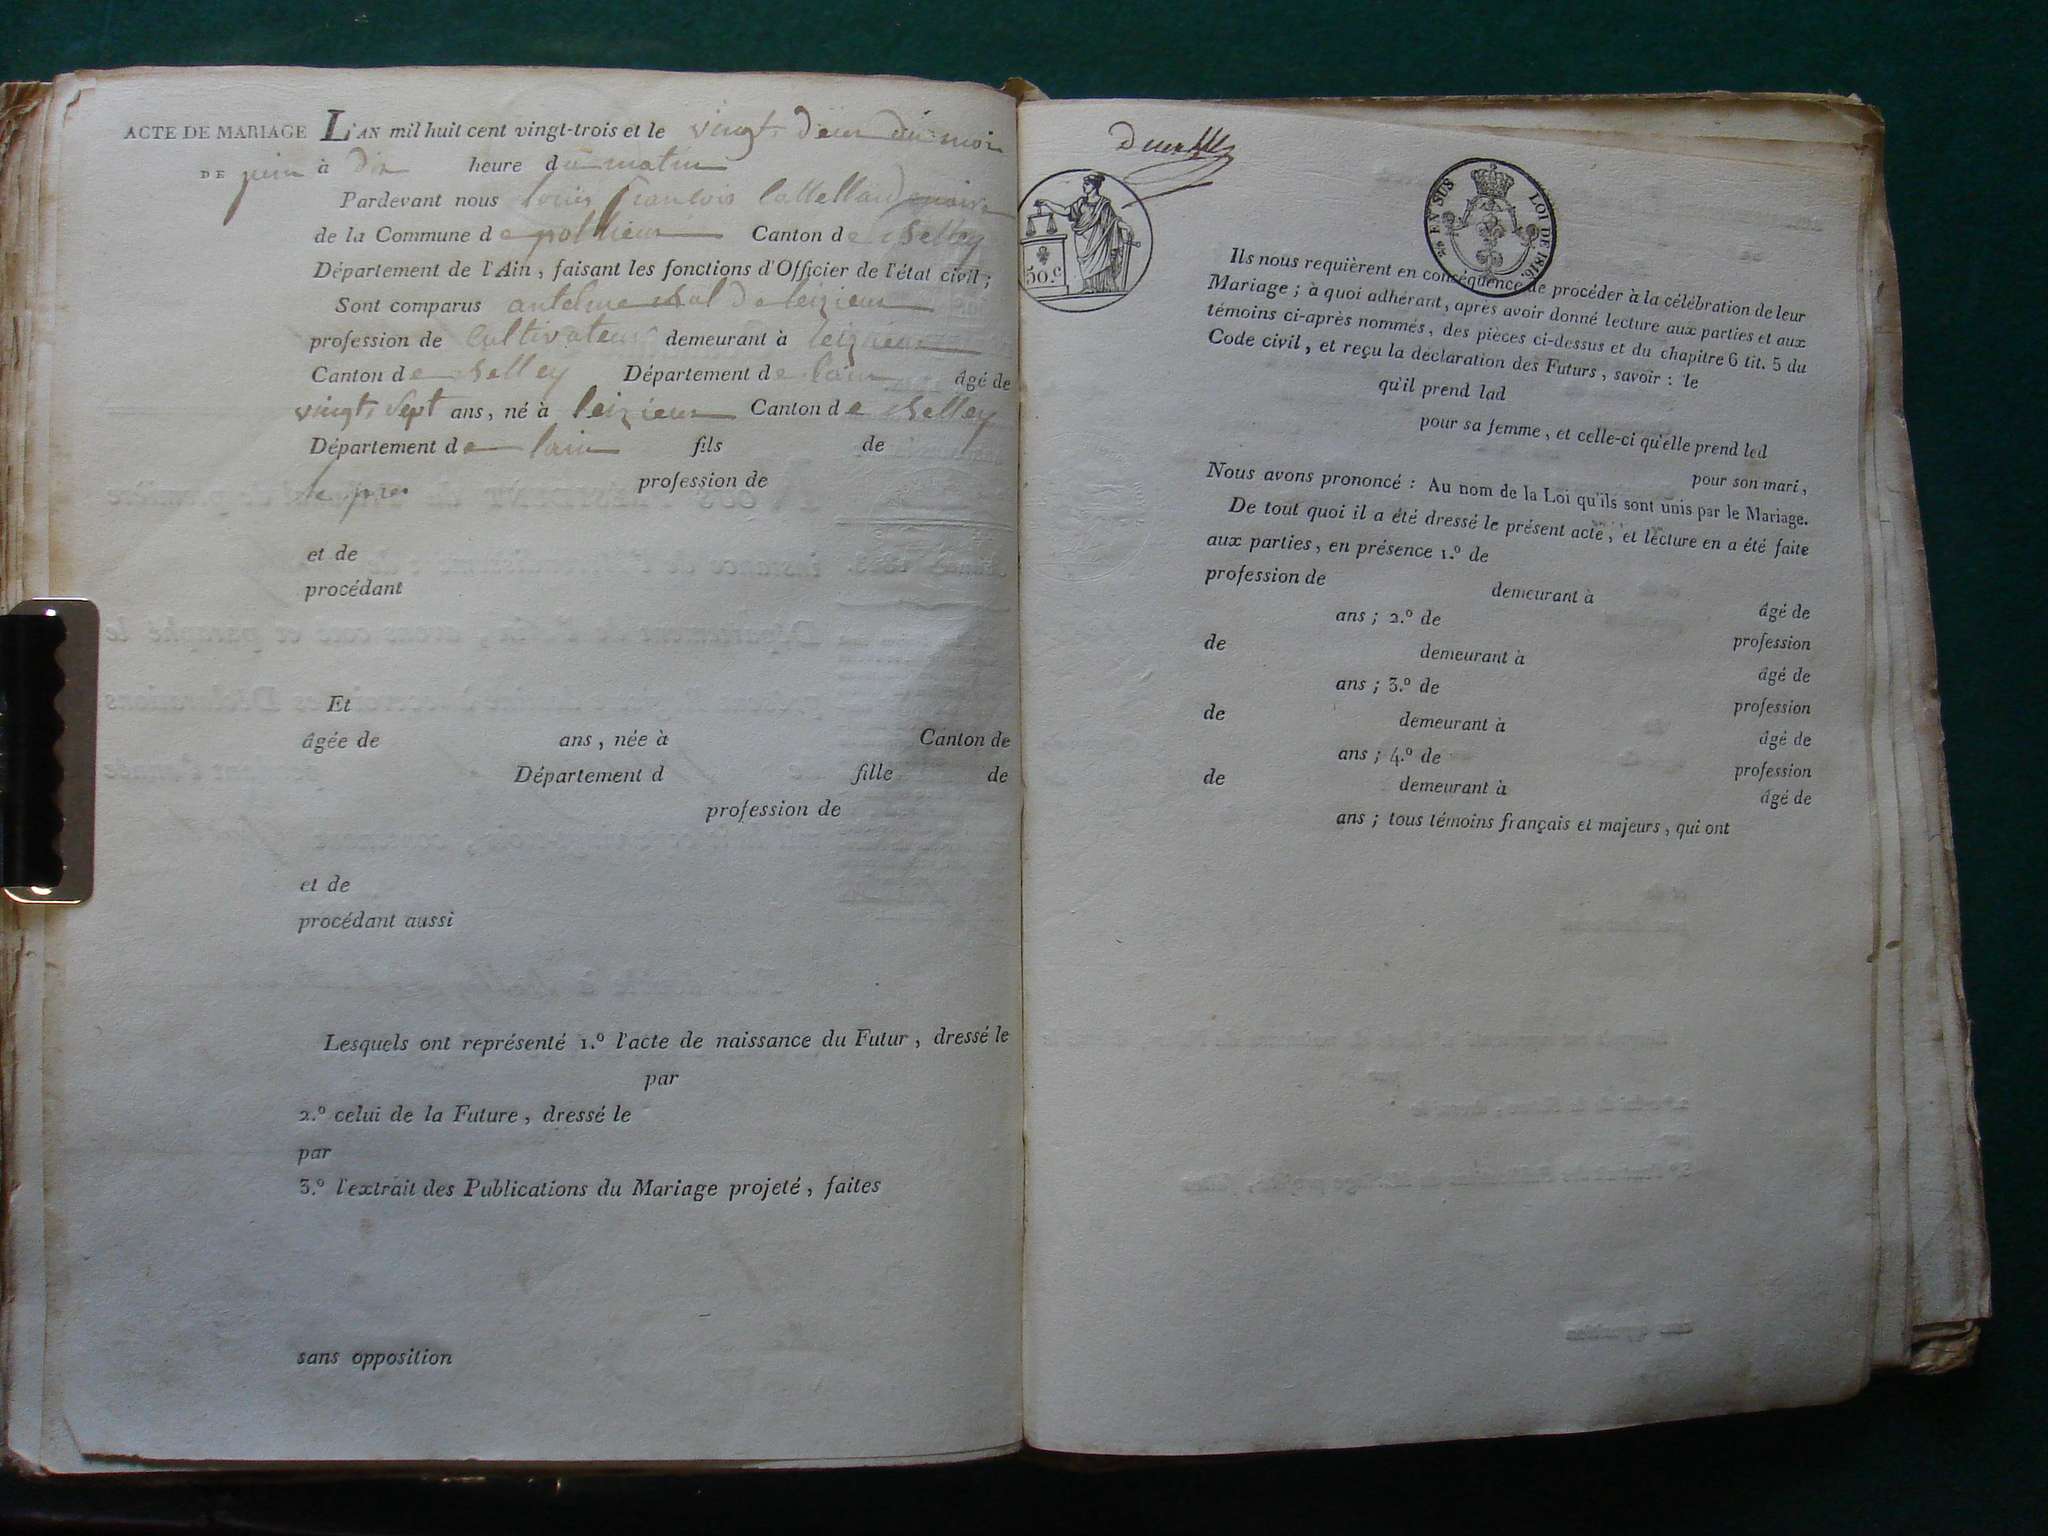 ACTE DE MARIAGE L'AN mil huit cent vingt-trois et le vingt deux du mois
DE juin à dix heure du matin
Pardevant nous louis françois maire
de la Commune de pollieu Canton de Belley
Département de l'Ain, faisant les fonctions d'Officier de l'état civil;
Sont comparus antelme de leizieu
profession de cultivateur demeurant à leizieu
Canton de Belley Département de lain âgé de
vingt sept ans, né à leizieu Canton de Belley
Département de lain fils de
profession de
et de
procédant
Et
âgée de ans, née à Canton de
Département d fille de
profession de
et de
procédant aussi
Lesquels ont représenté 1.º l'acte de naissance du Futur, dressé le
par
2.º celui de la Future, dressé le
par
3.º l'extrait des Publications du Mariage projeté, faites
sans opposition
50.c
EN SUS LOI DE 1816.
Ils nous requièrent en conséquence de procéder à la célébration de leur
Mariage; à quoi adhérant, après avoir donné lecture aux parties et aux
témoins ci-après nommés, des pièces ci-dessus et du chapitre 6 tit. 5 du
Code civil, et reçu la déclaration des Futurs, savoir: le
qu'il prend lad
pour sa femme, et celle-ci qu'elle prend led
pour son mari,
Nous avons prononcé: Au nom de la Loi qu'ils sont unis par le Mariage.
De tout quoi il a été dressé le présent acte, et lecture en a été faite
aux parties, en présence 1.º de
profession de demeurant à âgé de
ans; 2.º de profession
de demeurant à âgé de
ans; 3.º de profession
de demeurant à âgé de
ans; 4.º de profession
de demeurant à âgé de
ans; tous témoins français et majeurs, qui ont